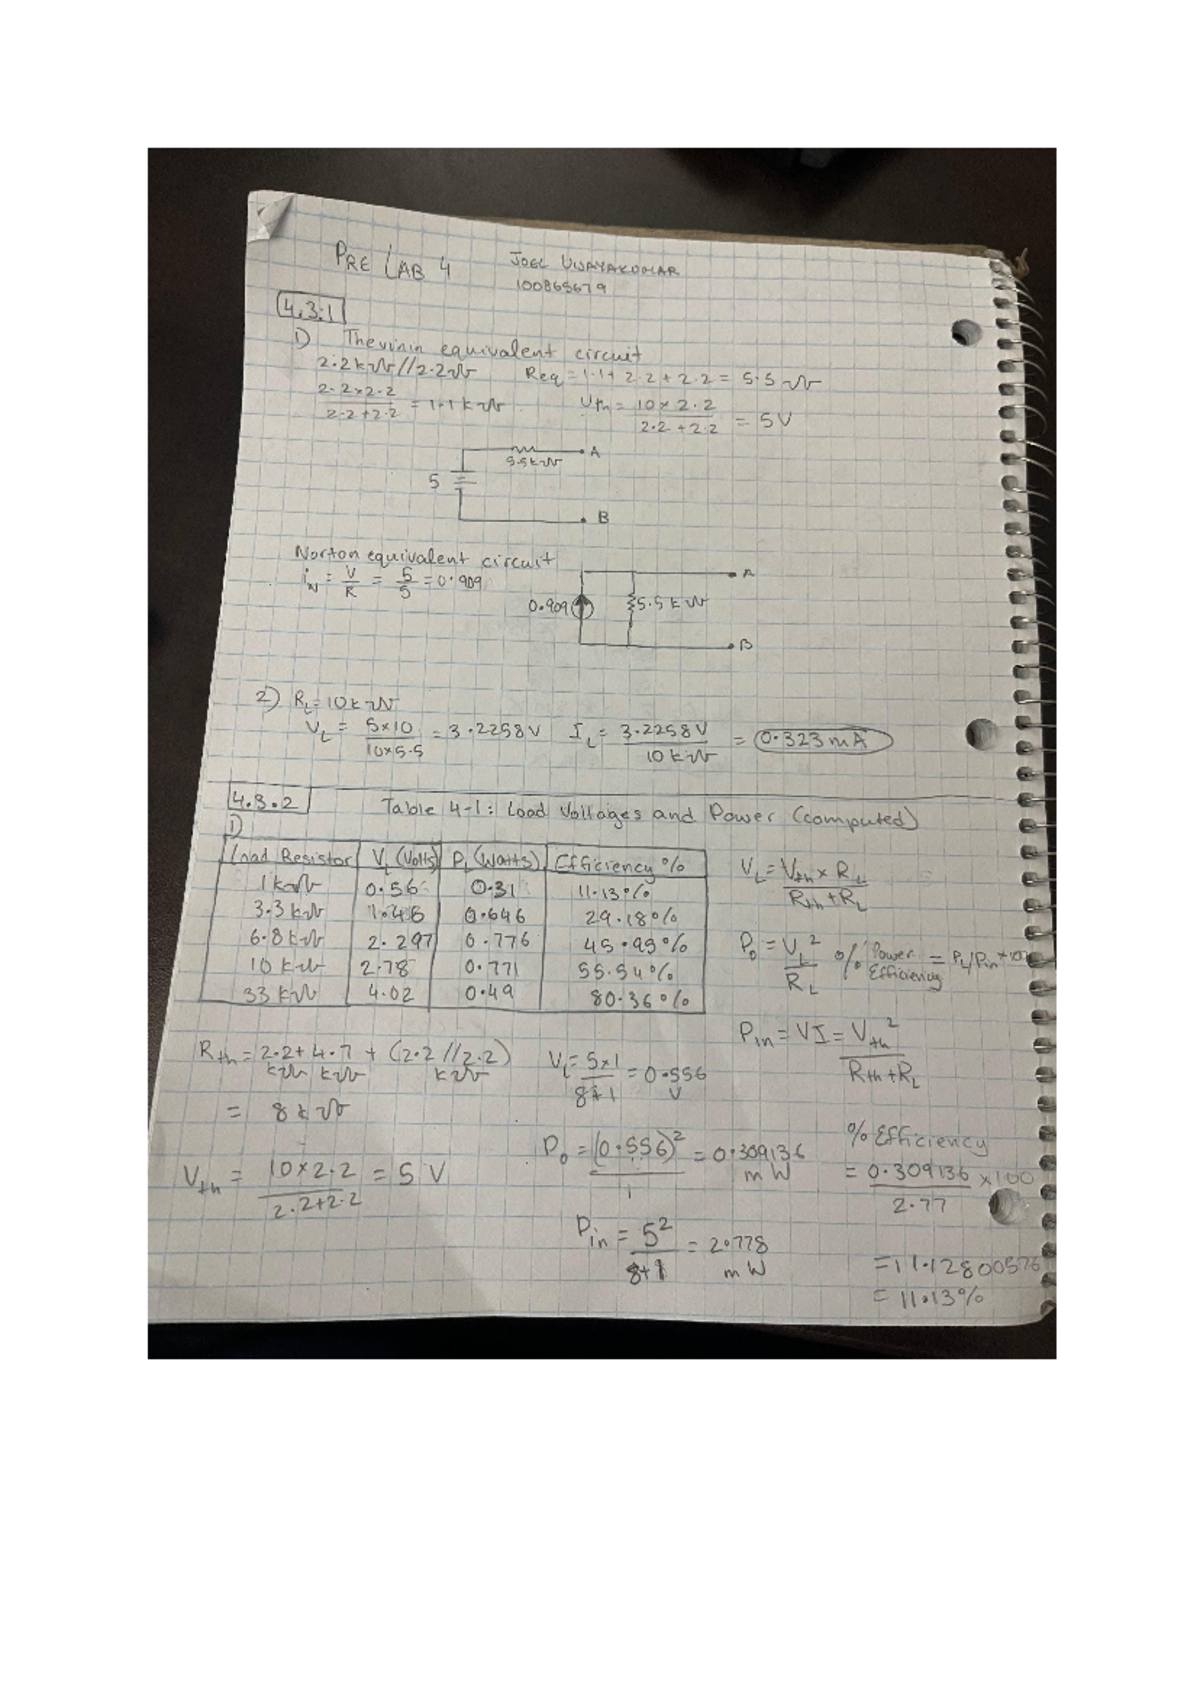 PRE LAB 4
JOEL VIJAYAKUMAR
100865679
4.3.1
1) Thevinin equivalent circuit
2.2kΩ//2.2Ω Req = 1.1 + 2.2 + 2.2 = 5.5 Ω
2.2×2.2 / 2.2+2.2 = 1.1 kΩ Vth = 10 × 2.2 / 2.2 + 2.2 = 5V
5.5kΩ A
5
B
Norton equivalent circuit
iN = V/R = 5/5 = 0.909
A
0.909 5.5kΩ
B
2) RL = 10kΩ
VL = 5×10 / 10×5.5 = 3.2258V IL = 3.2258V / 10kΩ = 0.323mA
4.3.2 Table 4-1: Load Voltages and Power (computed)
1)
Load Resistor VL (Volts) PL (Watts) Efficiency %
1kΩ 0.56 0.31 11.13%
3.3kΩ 1.46 0.646 29.18%
6.8kΩ 2.297 0.776 45.95%
10kΩ 2.78 0.771 55.54%
33kΩ 4.02 0.49 80.36%
VL = Vth × RL / Rth + RL
Po = VL² / RL % Power Efficiency = PL/Pin × 100
Pin = VI = Vth² / Rth + RL
Rth = 2.2kΩ + 4.7kΩ + (2.2 // 2.2)kΩ
= 8kΩ
Vth = 10×2.2 / 2.2+2.2 = 5 V
VL = 5×1 / 8+1 = 0.556 V
Po = (0.556)² / 1 = 0.309136 mW
Pin = 5² / 8+1 = 2.778 mW
% Efficiency
= 0.309136 / 2.77 × 100
= 11.12800576
= 11.13%